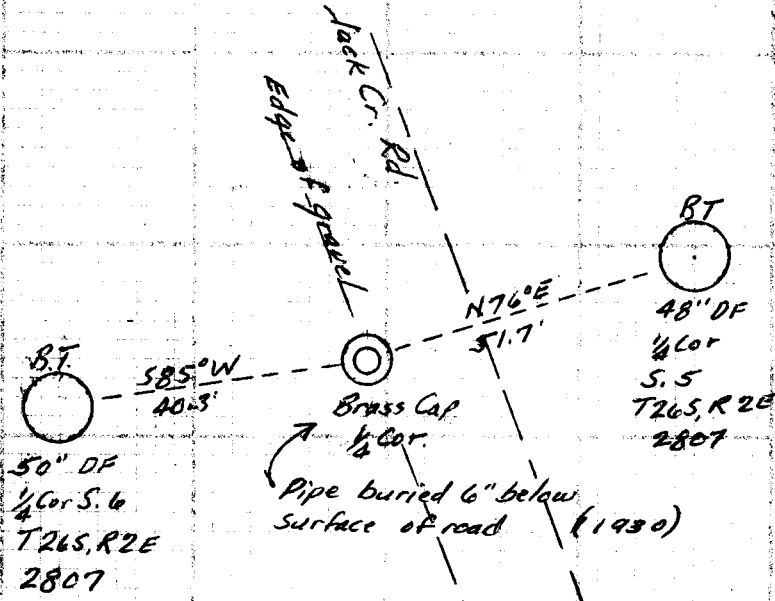 Jack Cr. Rd.
Edge of gravel
BT
N76°E
51.7'
48" DF
1/4 Cor
S. 5
T26S, R2E
2807
B.T.
S85°W
40.3'
Brass Cap
1/4 Cor.
50" DF
1/4 Cor S. 6
T26S, R2E
2807
Pipe buried 6" below
surface of road (1980)